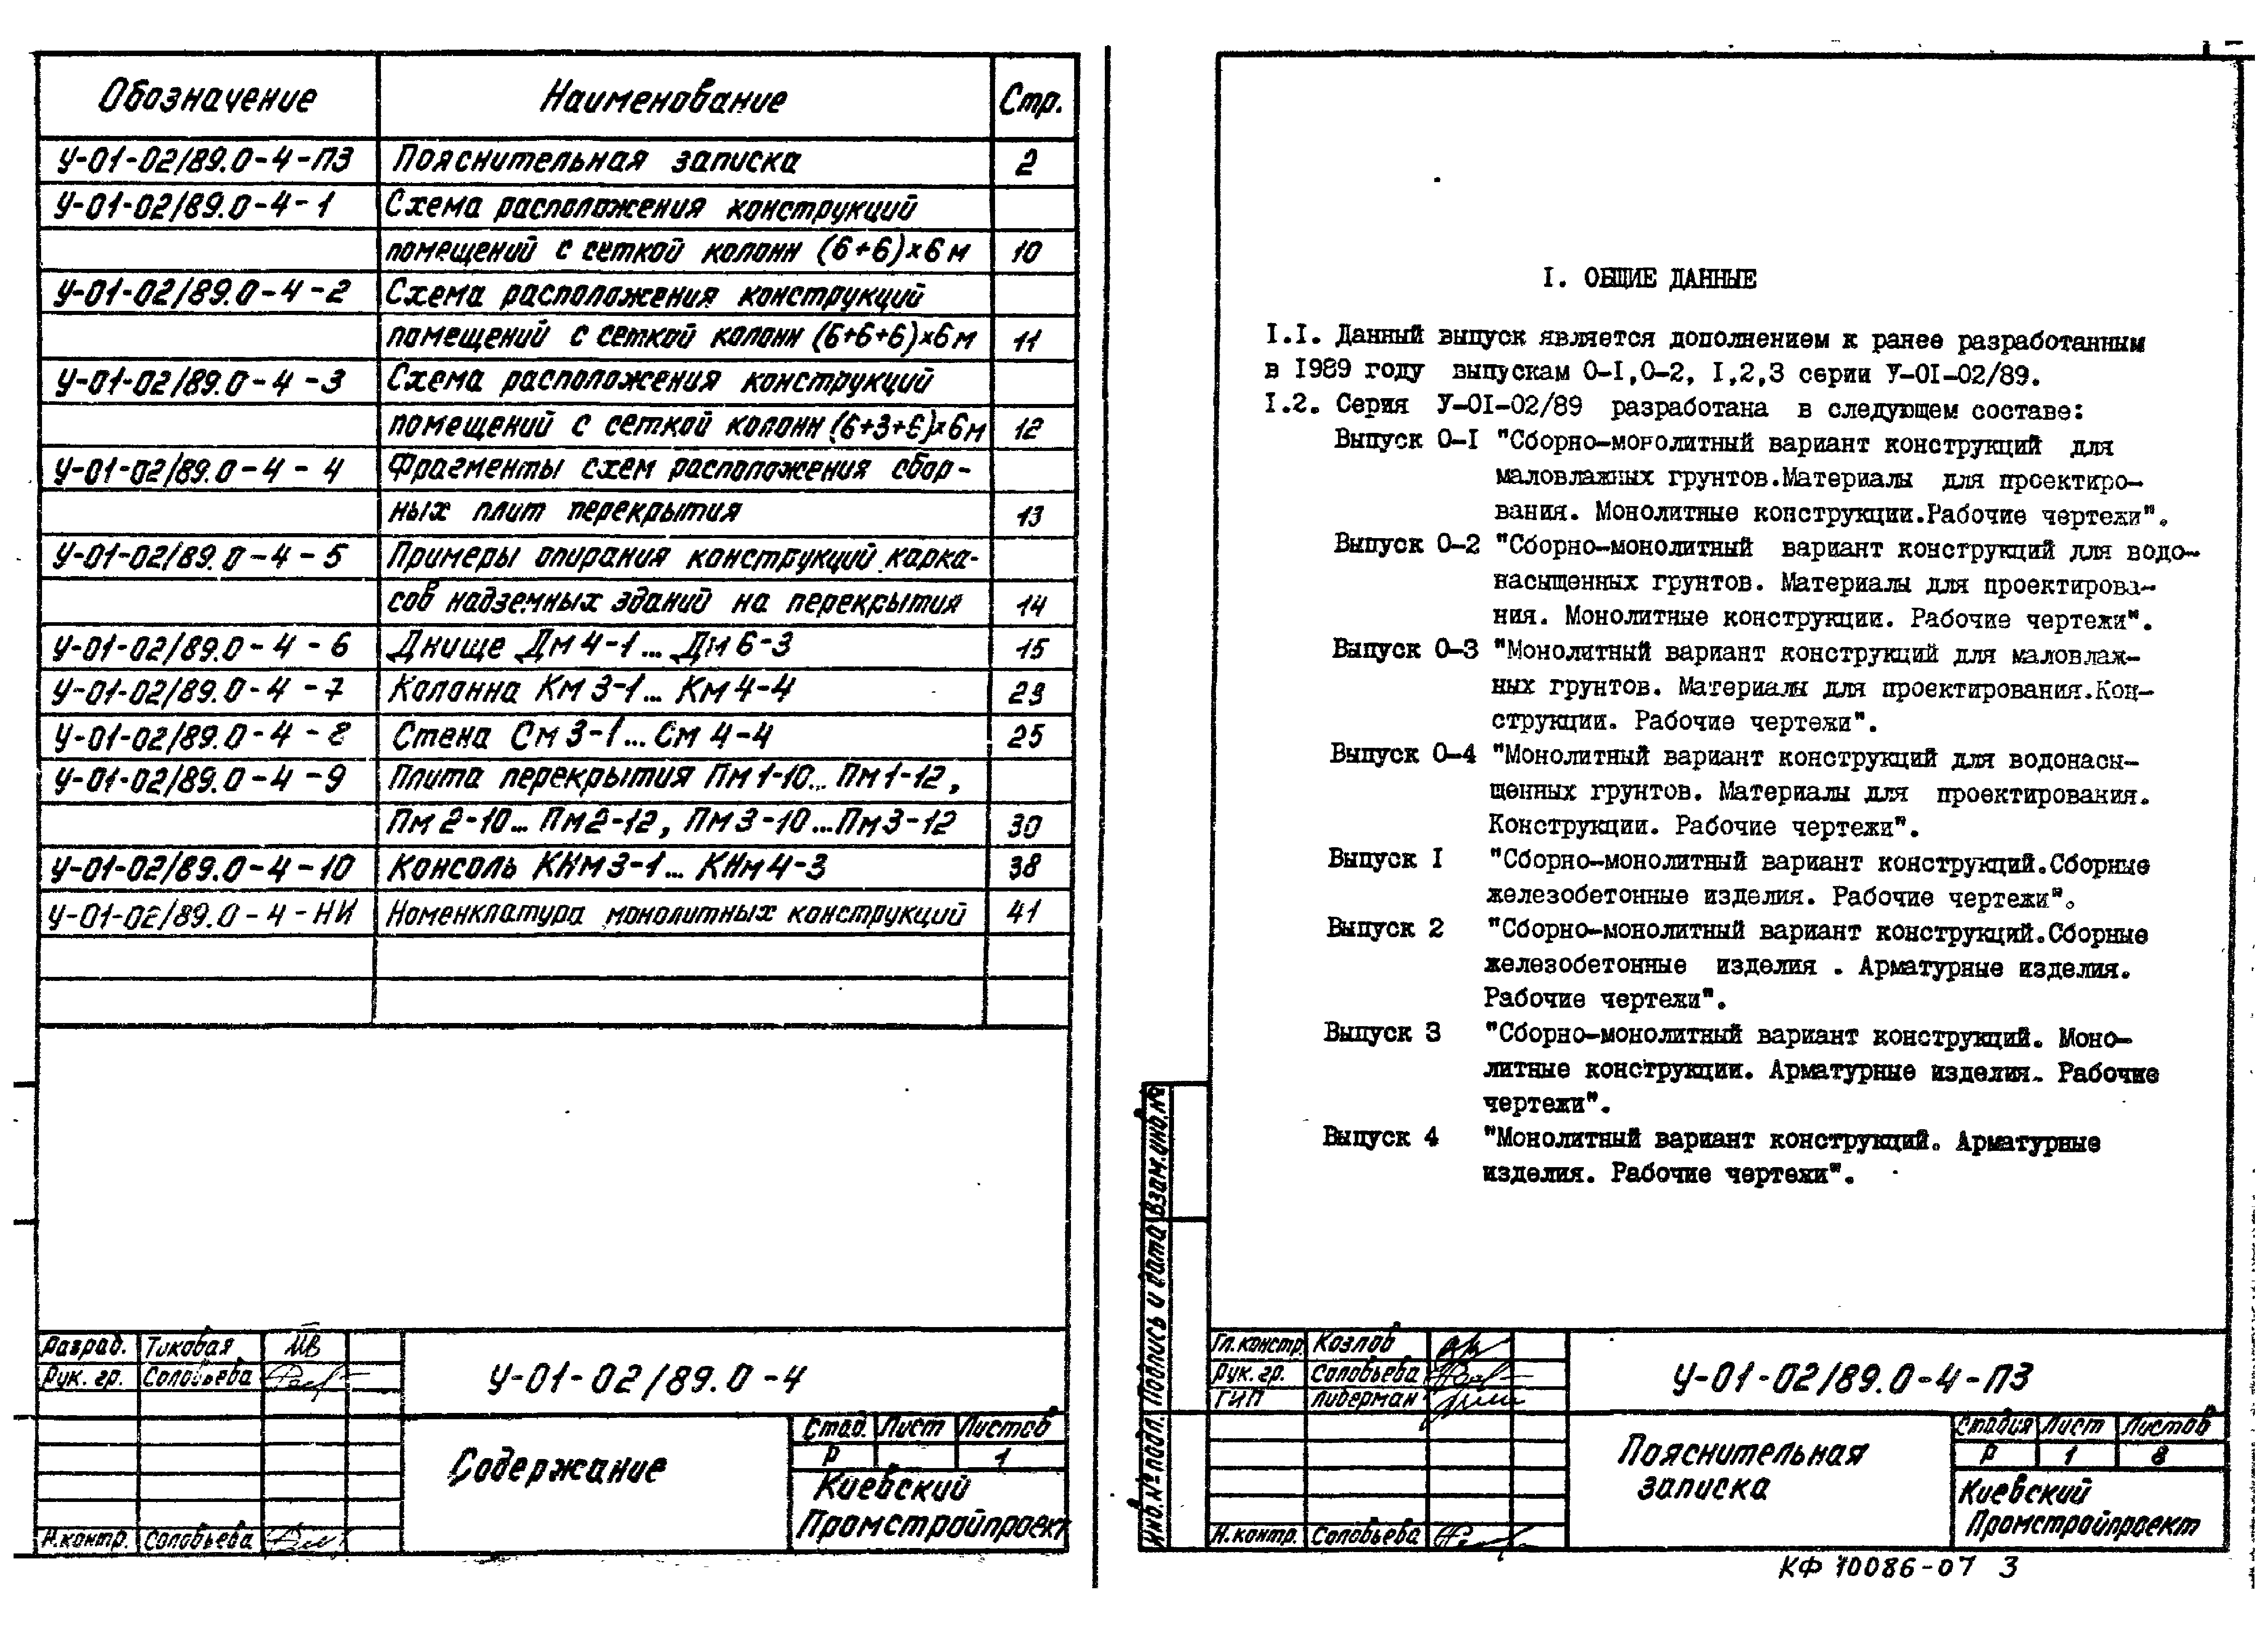 Обозначение Наименование Стр.
У-01-02/89.0-4-ПЗ Пояснительная записка 2
У-01-02/89.0-4-1 Схема расположения конструкций
помещений с сеткой колонн (6+6)×6м 10
У-01-02/89.0-4-2 Схема расположения конструкций
помещений с сеткой колонн (6+6+6)×6м 11
У-01-02/89.0-4-3 Схема расположения конструкций
помещений с сеткой колонн (6+3+6)×6м 12
У-01-02/89.0-4-4 Фрагменты схем расположения сбор-
ных плит перекрытия 13
У-01-02/89.0-4-5 Примеры опирания конструкций карка-
сов надземных зданий на перекрытия 14
У-01-02/89.0-4-6 Днище Дм 4-1... Дм 6-3 15
У-01-02/89.0-4-7 Колонна Км 3-1... Км 4-4 23
У-01-02/89.0-4-8 Стена См 3-1... См 4-4 25
У-01-02/89.0-4-9 Плита перекрытия Пм 1-10... Пм 1-12,
Пм 2-10... Пм 2-12, Пм 3-10... Пм 3-12 30
У-01-02/89.0-4-10 Консоль КНм 3-1... КНм 4-3 38
У-01-02/89.0-4-НИ Номенклатура монолитных конструкций 41
Разраб. Тиковая
Рук. гр. Соловьева
У-01-02/89.0-4
Содержание
Стад. Лист Листов
Р 1
Киевский
Промстройпроект
Н.контр. Соловьева
I. ОБЩИЕ ДАННЫЕ
I.I. Данный выпуск является дополнением к ранее разработанным
в 1989 году выпускам 0-I,0-2, I,2,3 серии У-0I-02/89.
I.2. Серия У-0I-02/89 разработана в следующем составе:
Выпуск 0-I "Сборно-монолитный вариант конструкций для
маловлажных грунтов.Материалы для проектиро-
вания. Монолитные конструкции.Рабочие чертежи".
Выпуск 0-2 "Сборно-монолитный вариант конструкций для водо-
насыщенных грунтов. Материалы для проектирова-
ния. Монолитные конструкции. Рабочие чертежи".
Выпуск 0-3 "Монолитный вариант конструкций для маловлаж-
ных грунтов. Материалы для проектирования.Кон-
струкции. Рабочие чертежи".
Выпуск 0-4 "Монолитный вариант конструкций для водонасы-
щенных грунтов. Материалы для проектирования.
Конструкции. Рабочие чертежи".
Выпуск I "Сборно-монолитный вариант конструкций.Сборные
железобетонные изделия. Рабочие чертежи".
Выпуск 2 "Сборно-монолитный вариант конструкций.Сборные
железобетонные изделия . Арматурные изделия.
Рабочие чертежи".
Выпуск 3 "Сборно-монолитный вариант конструкций. Моно-
литные конструкции. Арматурные изделия. Рабочие
чертежи".
Выпуск 4 "Монолитный вариант конструкций. Арматурные
изделия. Рабочие чертежи".
Инв.№ подл. Подпись и дата Взам.инв.№
Гл.констр. Козлов
Рук. гр. Соловьева
ГИП Либерман
У-01-02/89.0-4-ПЗ
Пояснительная
записка
Стадия Лист Листов
Р 1 8
Киевский
Промстройпроект
Н.контр. Соловьева
КФ 10086-07 3